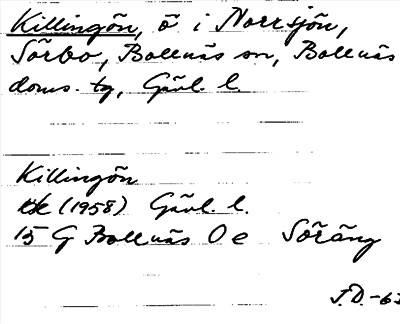 Killingön, ö i Norrsjön,
Sörbo, Bollnäs sn, Bollnäs
doms. tg, Gävl. l.
Killingön
ek (1958) Gävl. l.
15 G Bollnäs O e Söräng
J.D.-63